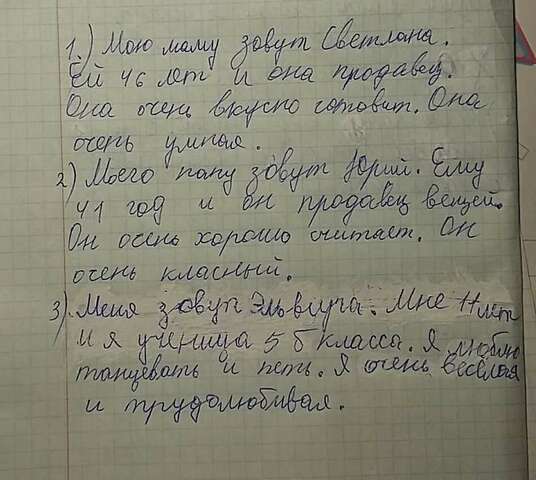 1.) Мою маму зовут Светлана.
Ей 46 лет и она продавец.
Она очень вкусно готовит. Она
очень умная.
2) Моего папу зовут Юрий. Ему
41 год и он продавец вещей.
Он очень хорошо считает. Он
очень класный.
3) Меня зовут Эльвира. Мне 11 лет
И я ученица 5 б класса. Я люблю
танцевать и петь. Я очень весёлая
и трудолюбивая.